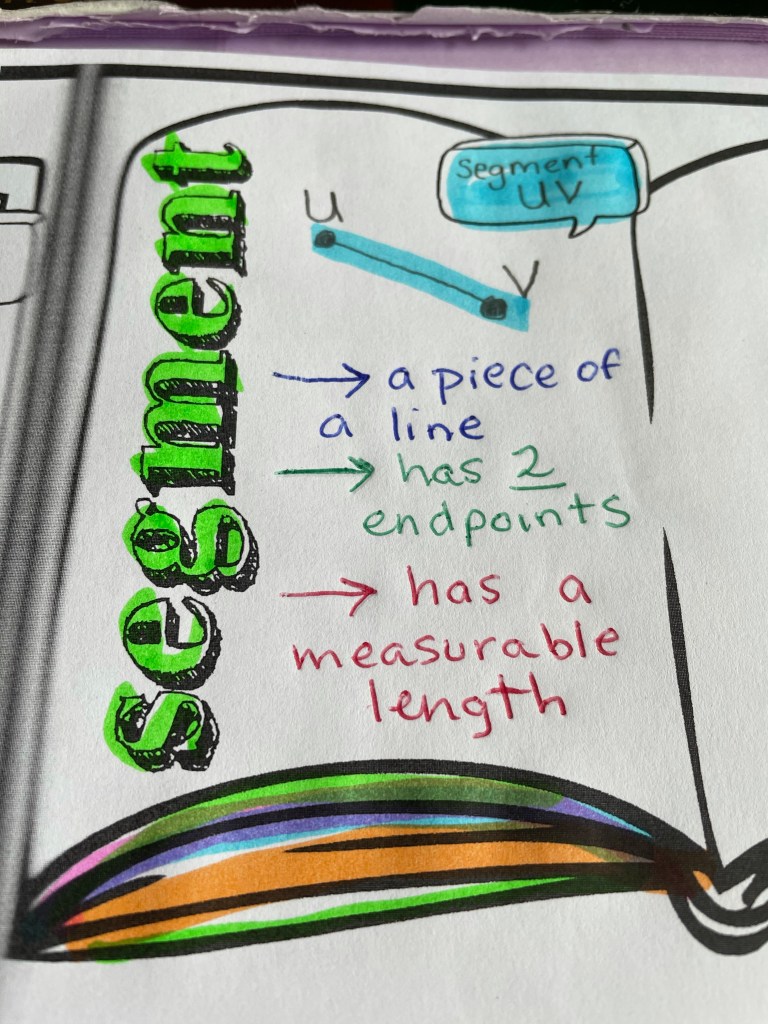 segment
segment
UV
U
V
→ a piece of
a line
→ has 2
endpoints
→ has a
measurable
length